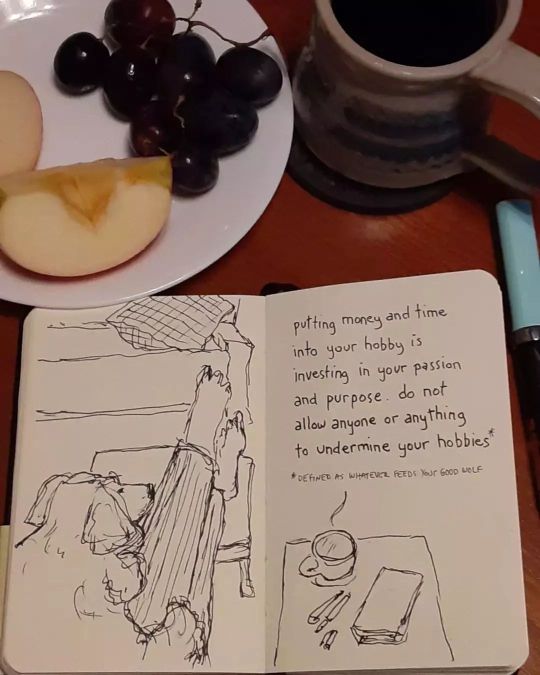 putting money and time
into your hobby is
investing in your passion
and purpose. do not
allow anyone or anything
to undermine your hobbies*
*DEFINED AS WHATEVER FEEDS YOUR GOOD WOLF